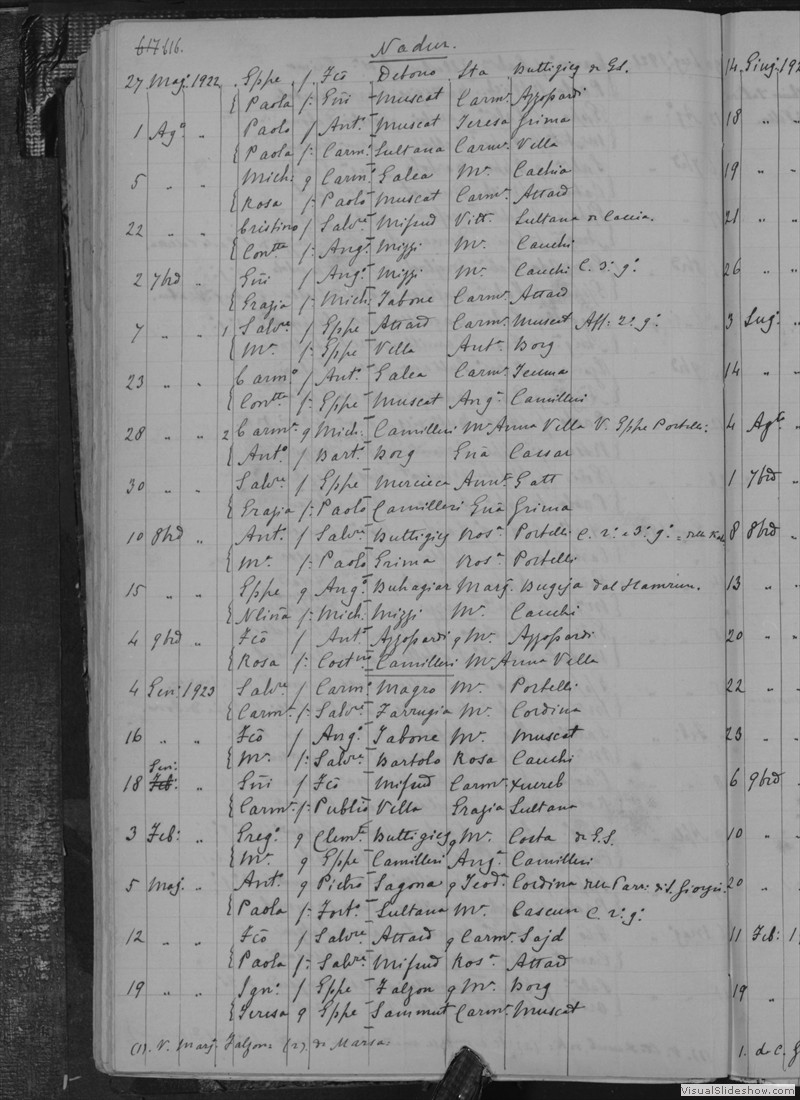 617 616.
Nadur.
27 Maj. 1922 Gppe f Fcō Debono Sta Buttigieg di GS.
{ Paola f: Giũ Muscat Carmª Azzopardi
1 Agº „ Paolo f Antº Muscat Teresa Grima
{ Paola f: Carmº Sultana Carmª Vella
5 „ „ Mich: q Carmº Galea Mª Cachia
{ Rosa f: Paolo Muscat Carmª Attard
22 „ „ Cristino f Salvre Mifsud Vitt. Sultana di Caccia.
{ Contta f: Angº Mizzi Mª Cauchi
2 7brd „ Giũi f Angº Mizzi Mª Cauchi C. 3º gº
{ Grazia f: Mich: Tabone Carmª Attard
7 „ „ 1 Salvre f Gppe Attard Carmª Muscat Aff: 2º gº
{ Mª f: Gppe Vella Antª Borg
23 „ „ Carmº f Antº Galea Carmª
{ Contta f: Gppe Muscat Angª Camilleri
28 „ „ 2 Carmª q Mich: Camilleri Mª Anna Vella V. Gppe Portelli.
{ Antº f Bart. Borg Giũa Cassar
30 „ „ Salvre f Gppe Mercieca Annta Gatt
{ Grazia f: Paolo Camilleri Giũa Grima
10 8brd „ Antº f Salvre Buttigieg Rosª Portelli C. 2º e 3º gº
{ Mª f: Paolo Grima Rosª Portelli
15 „ „ Gppe q Angº Buhagiar Marj. Bugeja dal Hamrun.
{ f: Mich: Mizzi Mª Cauchi
4 9brd „ Fcō f Antº Azzopardi q Mª Azzopardi
{ Rosa f: Cost Camilleri Mª Anna Vella
4 Gen: 1923 Salvre f Carmº Magro Mª Portelli
{ Carmª f: Salvre Farrugia Mª Cordina
16 „ „ Fcō f Angº Tabone Mª Muscat
{ Mª f: Salvre Bartolo Rosa Cauchi
Gen:
18 Feb: „ Giũi f Fcō Mifsud Carmª Xuereb
{ Carmª f: Publio Vella Grazia Sultana
3 Feb: „ Gregº q Clemte Buttigieg q Mª Costa di G.S.
{ Mª q Gppe Camilleri Angª Camilleri
5 Maj. „ Antº q Pietro Sagona q Teodª Cordina della Parr: di S. Giorgio.
{ Paola f: Fortº Sultana Mª Cascun C. 2º gº
12 „ „ Fcō f Salvre Attard q Carmª Sajd
{ Paola f: Salvre Mifsud Rosª Attard
19 „ „ Ignº f Gppe Falzon q Mª Borg
{ Teresa q Gppe Sammut Carmª Muscat
(1). V. Marj. Falzon: (2). di Marsa
14 Giug. 192
18 „ „
19 „ „
21 „ „
26 „ „
3 Lug. „
14 „ „
4 Agto „
1 7brd „
8 8brd „
13 „ „
20 „ „
22 „ „
23 „ „
6 9brd „
10 „ „
20 „ „
11 Feb: 1
19 „
1. d. C.
VisualSlideshow.com